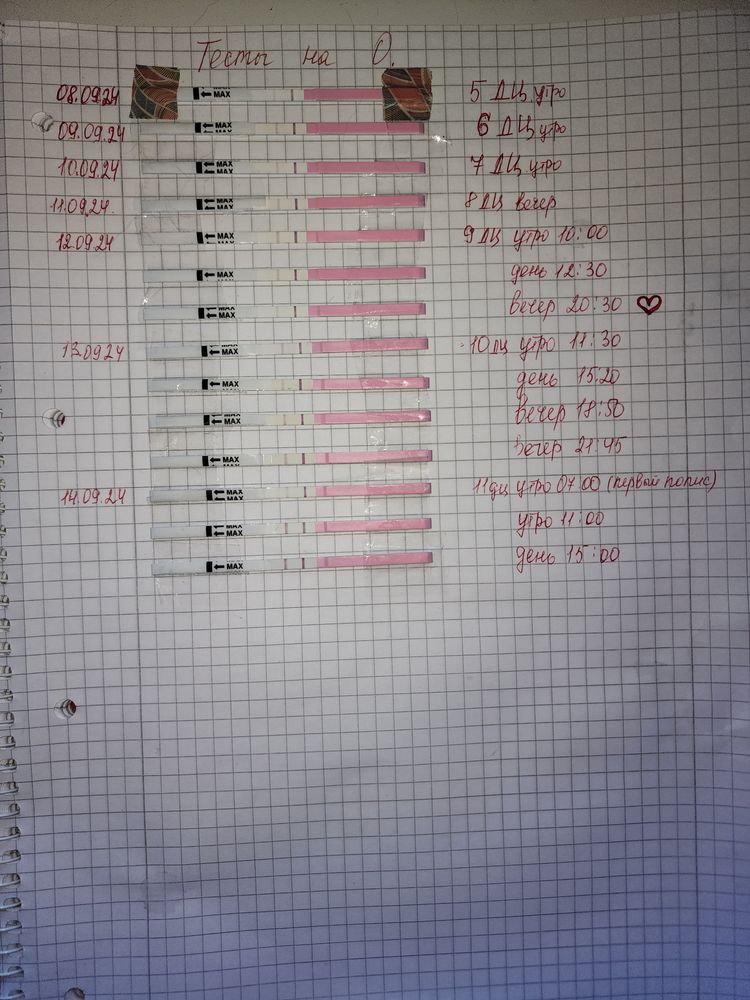 Тесты на О.
08.09.24 ← MAX 5 ДЦ утро
09.09.24 ← MAX MAX 6 ДЦ утро
10.09.24 MAX ← MAX 7 ДЦ утро
11.09.24. ← MAX MAX 8 ДЦ вечер
12.09.24 MAX ← MAX 9 ДЦ утро 10:00
← MAX день 12:30
← MAX вечер 20:30 ♡
13.09.24 ← MAX 10 дц утро 11:30
← MAX день 15:20
← MAX вечер 18:50
← MAX вечер 21:45
14.09.24 MAX ← MAX 11 дц утро 07:00 (первый попис)
MAX ← MAX утро 11:00
← MAX день 15:00